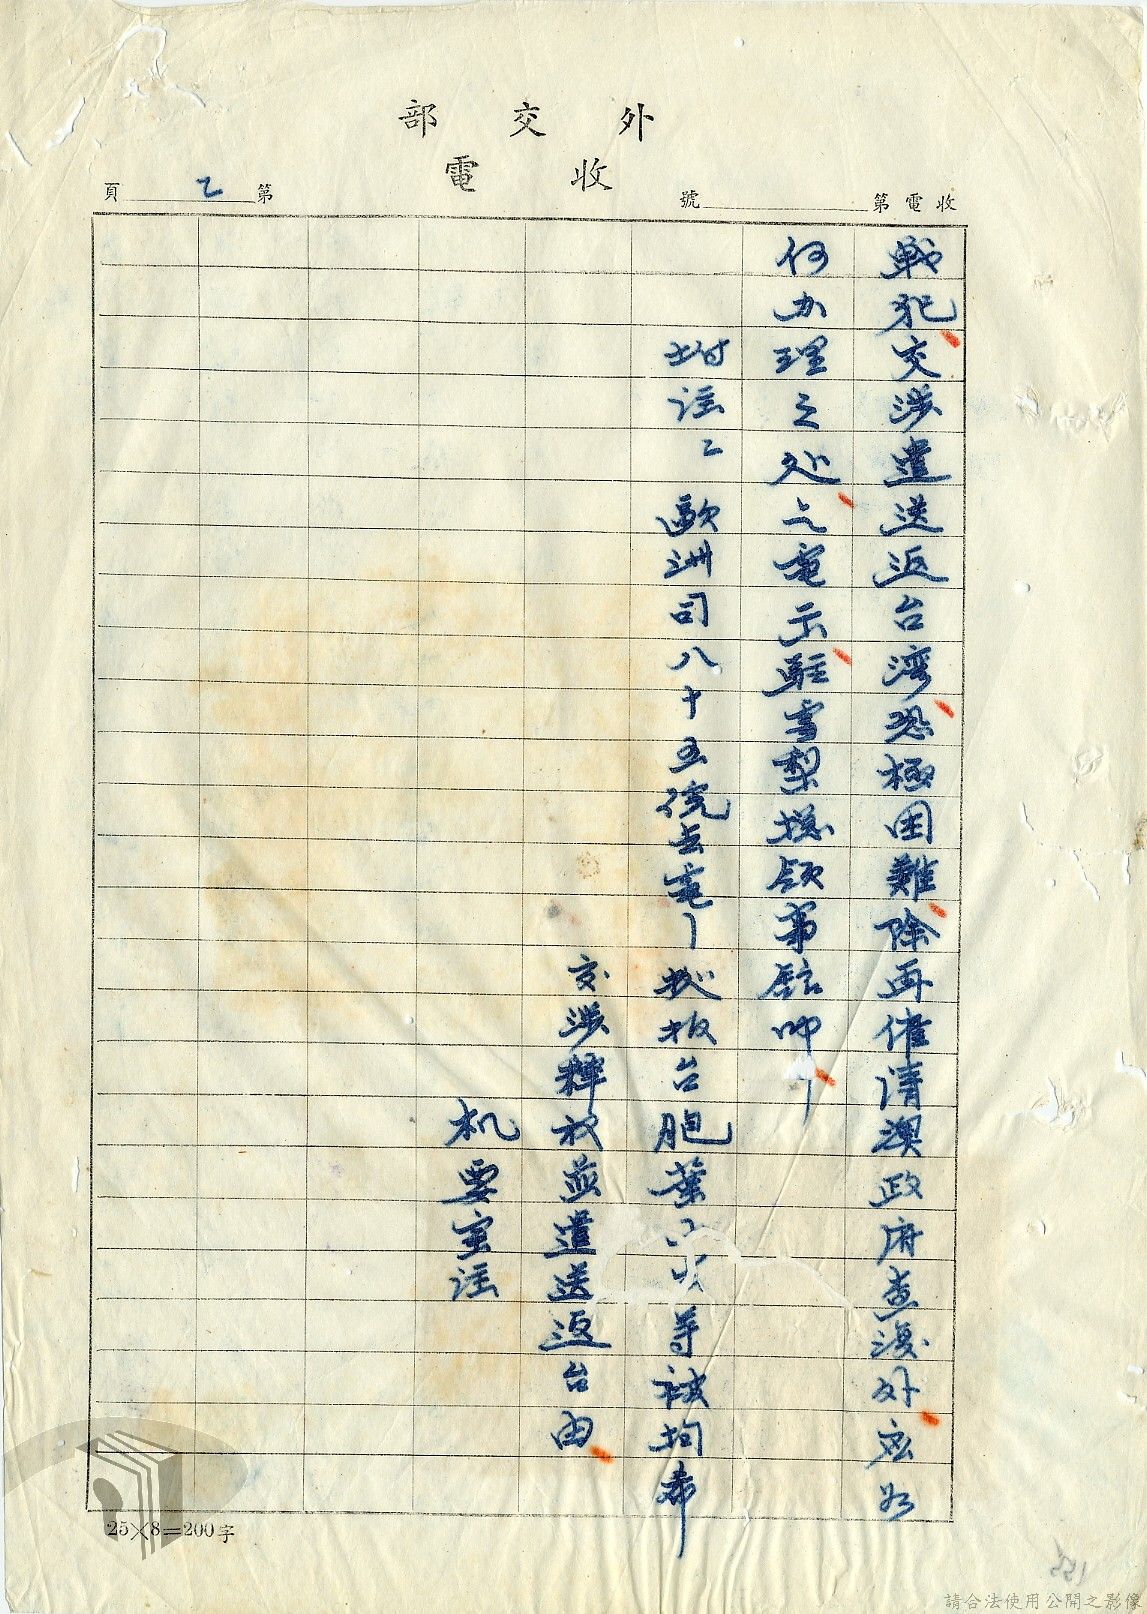 外交部
收電
收電第 號
第 2 頁
戰犯交涉遣送返台湾恐極困難除再催請澳政府查復外应如
何办理之处乞電示駐雪梨总領事館叩
附註： 歐洲司八十五 去電 据报台胞葉 等被拘希
交涉釋放並遣送返台由
机要室註
25×8=200字
請合法使用公開之影像